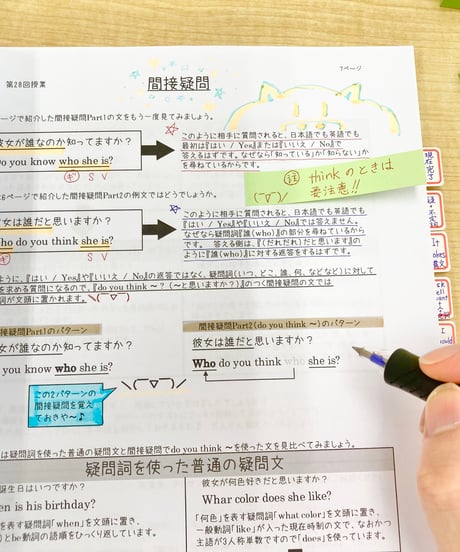 第28回授業
7ページ
間接疑問
ページで紹介した間接疑問Part1の文をもう一度見てみましょう。
女が誰なのか知ってますか？
Do you know who she is?
ギ S V
このように相手に質問されると、日本語でも英語でも
最初は『はい / Yes』または『いいえ / No』で
答えるはずです。なぜなら「知っている」か「知らない」か
を尋ねているからです。
注 thinkのときは
要注意!!
6ページで紹介した間接疑問Part2の例文ではどうでしょうか。
女は誰だと思いますか？
o do you think she is?
ギ S V
このように相手に質問されると、日本語でも英語でも
『はい / Yes』や『いいえ / No』では答えません。
なぜなら疑問詞『誰(who)』の部分を尋ねているから
です。 答える側は、『(だれだれ)だと思います』の
ように『誰(who)』に対する返答をするはずです。
ように、『はい / Yes』や『いいえ / No』の返答ではなく、疑問詞(いつ、どこ、誰、何、などなど)に対して
を求める質問になるので、『do you think ～？(～と思いますか？)』のつく間接疑問の文では
詞が文頭に置かれます。
接疑問Part1のパターン
女が誰なのか知ってますか？
you know who she is?
間接疑問Part2(do you think ～)のパターン
彼女は誰だと思いますか？
Who do you think who she is?
この2パターンの
間接疑問を覚えて
おきや～♪
は疑問詞を使った普通の疑問文と間接疑問でdo you think ～を使った文を見比べてみましょう。
疑問詞を使った普通の疑問文
誕生日はいつですか？
en is his birthday?
を表す疑問詞「when」を文頭に置き、
)とbe動詞の語順をひっくり返しています。
彼女が何色好きだと思いますか？
What color does she like?
「何色」を表す疑問詞「what color」を文頭に置き、
一般動詞「like」が入った現在時制の文で、なおかつ
主語が3人称単数ですので「does」を使っています。
現在完了
It
does